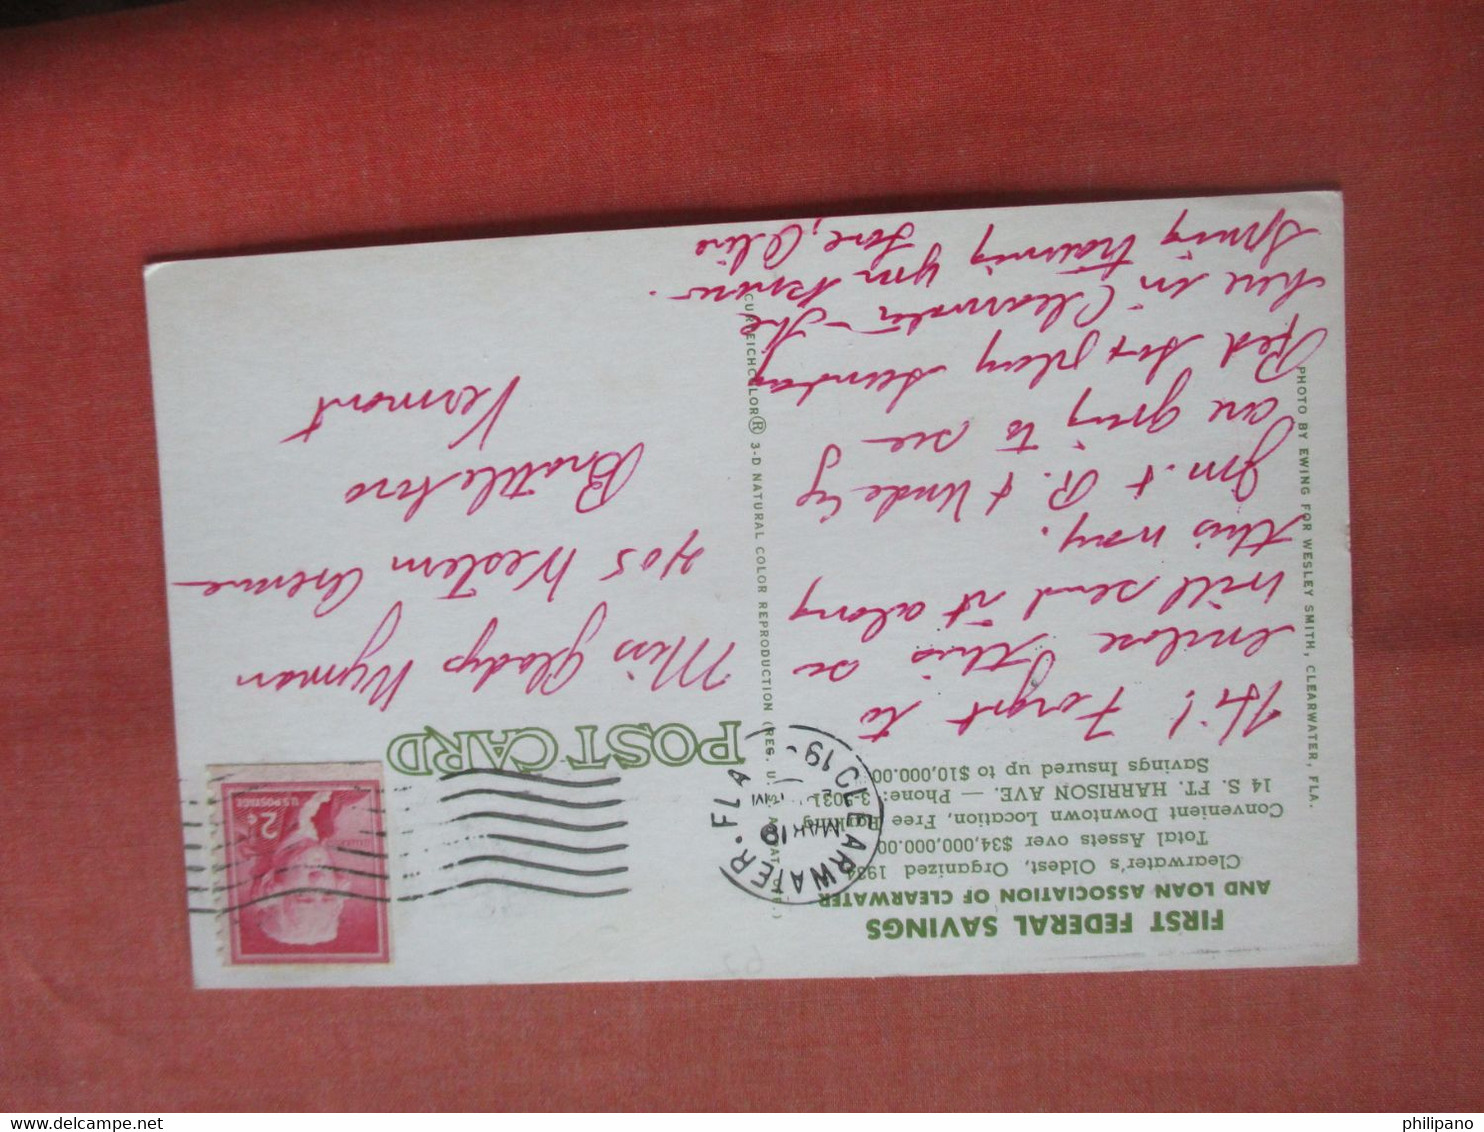 FIRST FEDERAL SAVINGS
AND LOAN ASSOCIATION OF CLEARWATER
Clearwater's Oldest, Organized 1934
Total Assets over $34,000,000.00
Convenient Downtown Location, Free Parking
14 S. FT. HARRISON AVE. — Phone: 3-5031
Savings Insured up to $10,000.00
Hi! Forgot to
enclose this so
will send it along
this way.
Jm. + R. + Uncle Cy
are going to see
Red Sox play Sunday
here in Clearwater - The
Spring training
Love, Olive
PHOTO BY EWING FOR WESLEY SMITH, CLEARWATER, FLA.
CURTEICHCOLOR® 3-D NATURAL COLOR REPRODUCTION (REG. U. S. A. PAT. OFF.)
CLEARWATER, FLA
MAR 10
19
2¢
U.S. POSTAGE
POST CARD
Miss Gladys Wyman
405 Western Avenue
Brattleboro
Vermont
delcampe.net
philipano